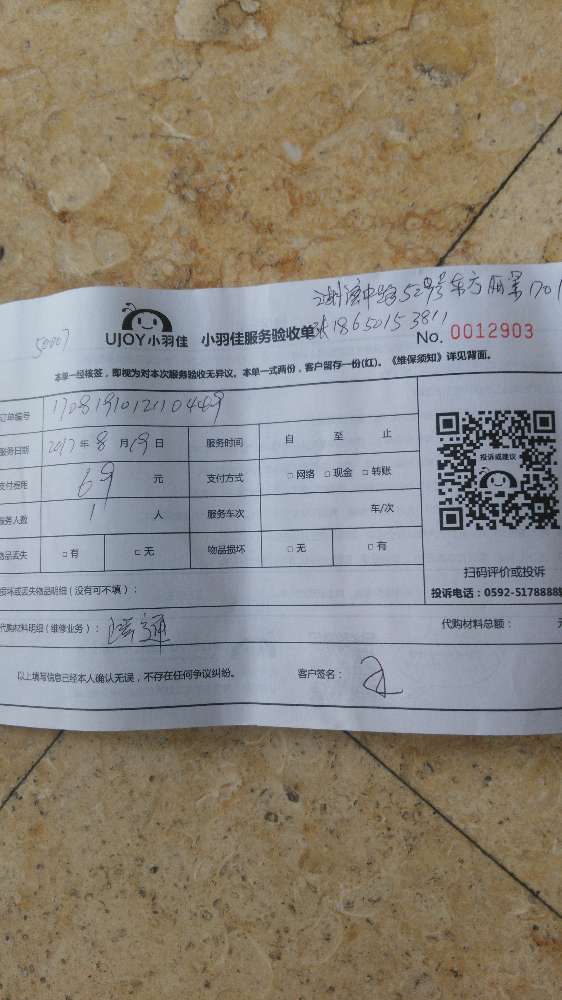 中路52号东方
张18650153811
50007
UJOY小羽佳 小羽佳服务验收单
No. 0012903
本单一经核签，即视为对本次服务验收无异议。本单一式两份，客户留存一份(红)。《维保须知》详见背面。
订单编号
服务日期 2017年8月19日 服务时间 自 至 止
支付费用 69元 支付方式 □网络 □现金 □转账
服务人数 1人 服务车次 车/次
物品丢失 □有 □无 物品损坏 □无 □有
投诉或建议
扫码评价或投诉
投诉电话：0592-5178888
损坏或丢失物品明细（没有可不填）：
代购材料明细（维修业务）： 代购材料总额：
以上填写信息已经本人确认无误，不存在任何争议纠纷。 客户签名：